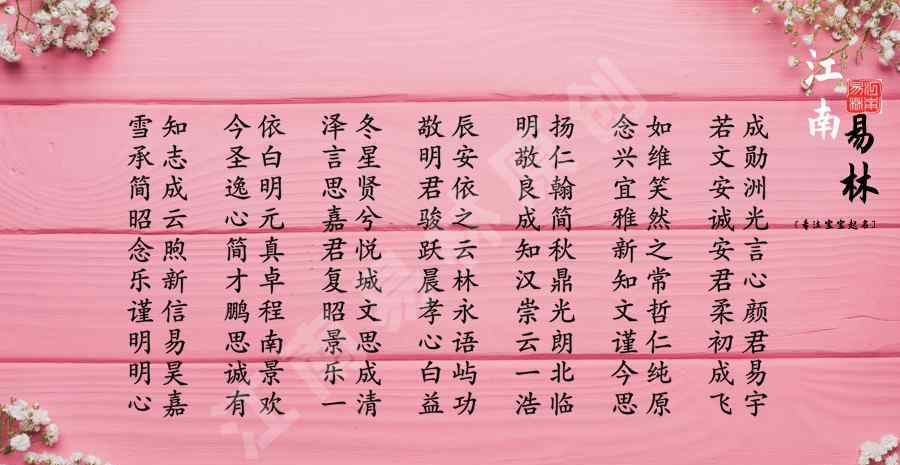 雪知 今依 泽冬 敬辰 明扬 念如 若成
承志 圣白 言星 明安 敬仁 兴维 文勋
简成 逸明 思贤 君依 良翰 宜笑 安洲
昭云 心元 嘉兮 骏之 成简 雅然 诚光
念煦 简真 君悦 跃云 知秋 新之 安言
乐新 才卓 复城 晨林 汉鼎 知常 君心
谨信 鹏程 昭文 孝永 崇光 文哲 柔颜
明易 思南 景思 心语 云朗 谨仁 初君
明昊 诚景 乐成 白屿 一北 今纯 成易
心嘉 有欢 一清 益功 浩临 思原 飞宇
江南
易林
江南易林
〔专注宝宝起名〕
江南易林原创